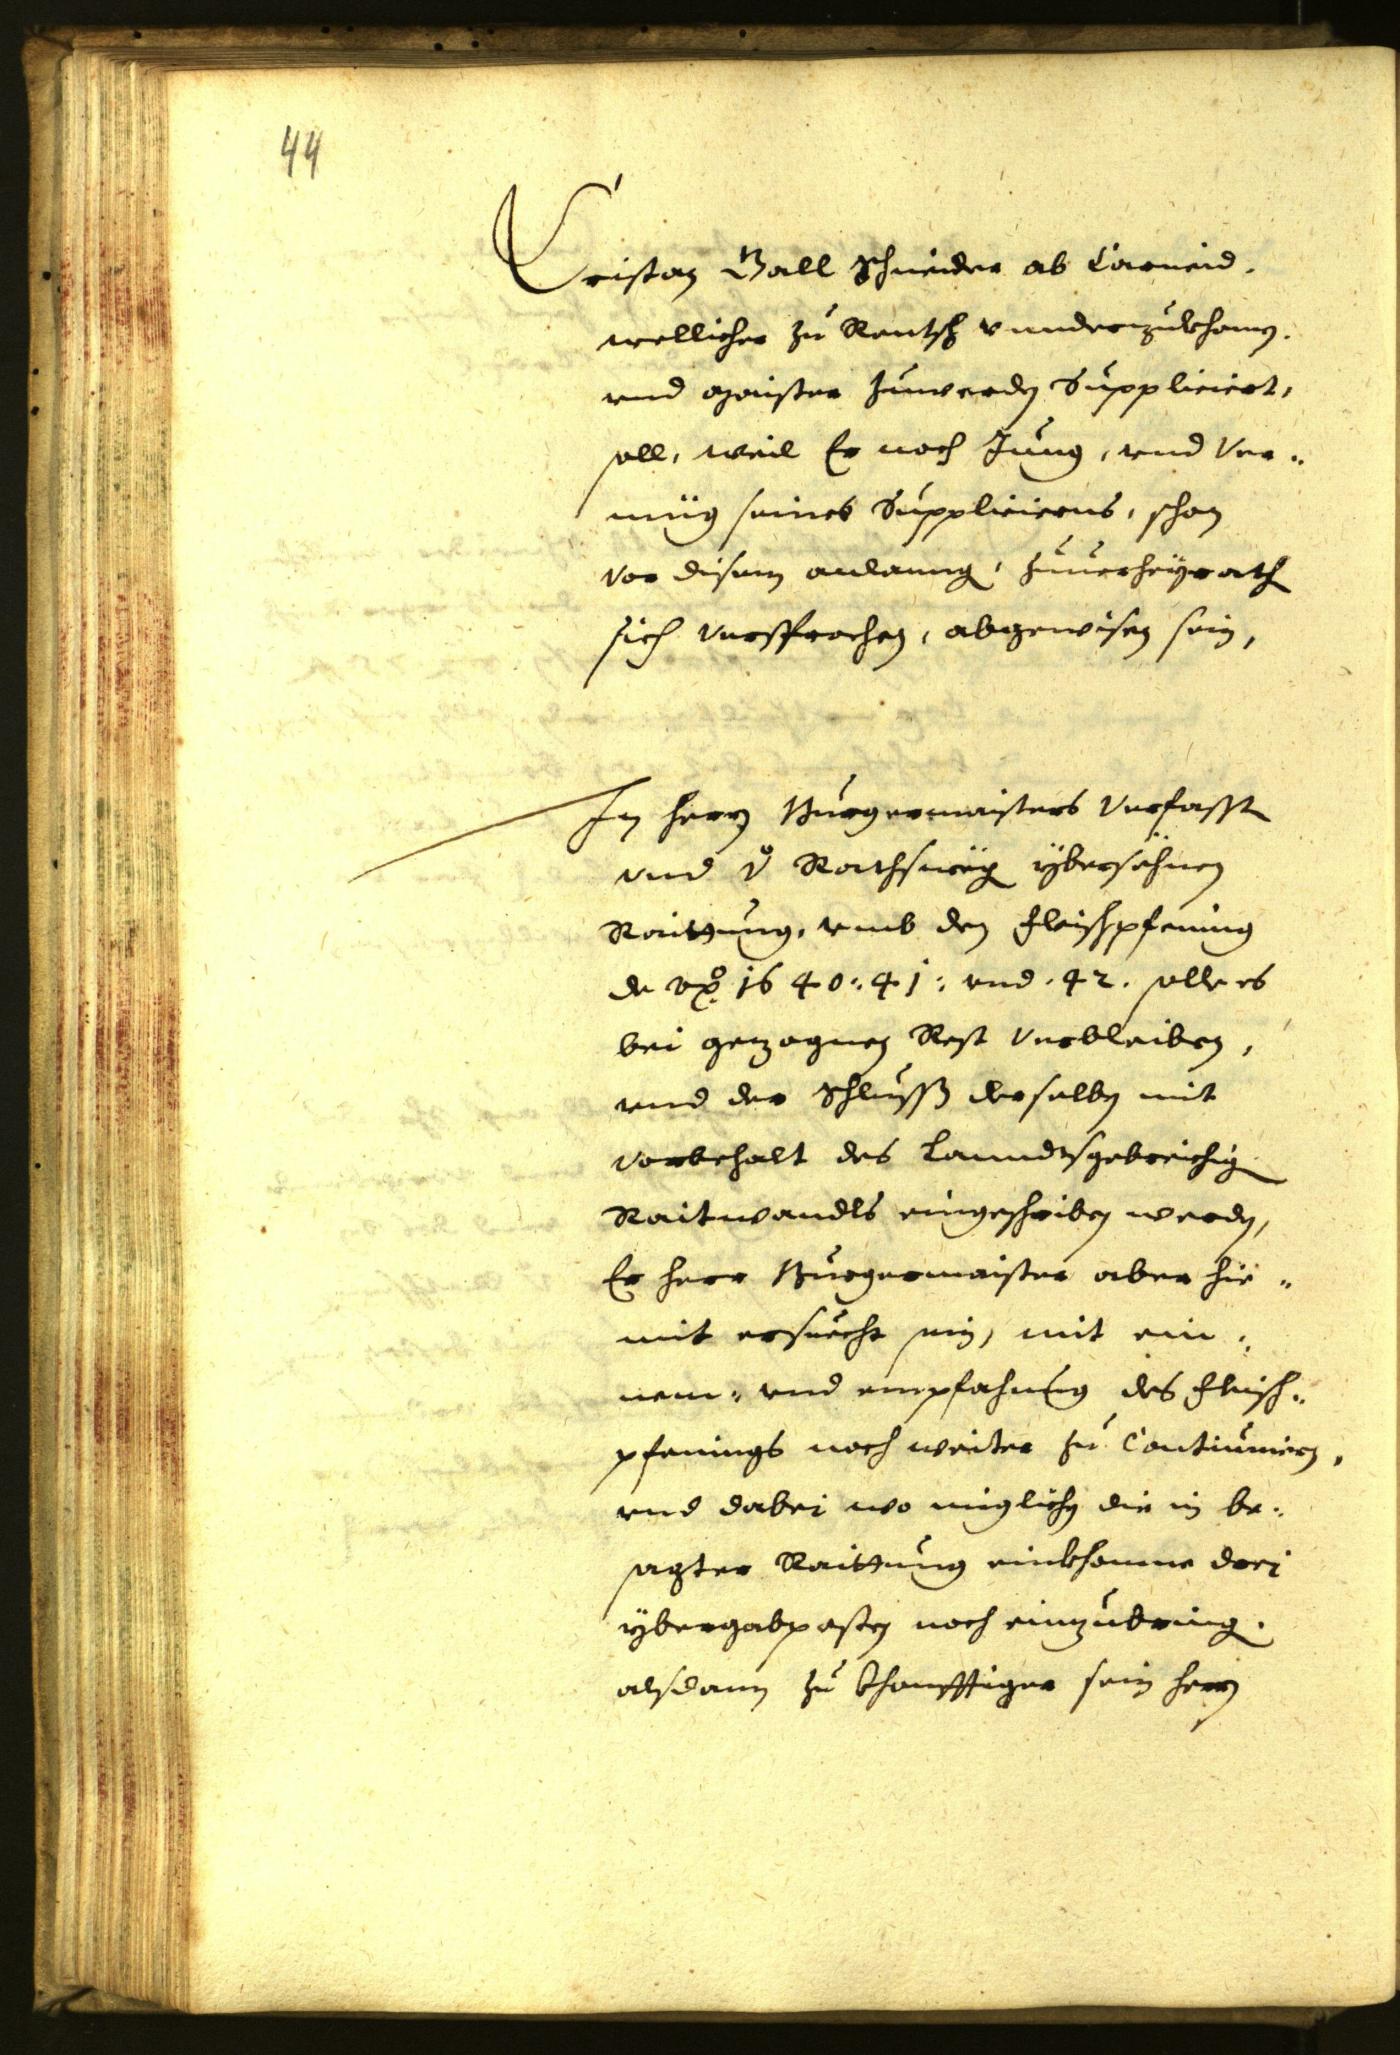 44
Cristan Ball Schneider ab Carneid.
wellicher zu Rentsch vnnderzukhomen.
vnd maister zuwerden Suppliciert,
soll, weil Er noch Jung, vnd Ver¬
müg seines Supplicierns, schon
vor disem anlanng, zuuerheÿrath
sich versprochen, abgewisen sein,
In herrn Burgermaisters Verfasst
vnd Rathsweg ÿbersähnen
Raittung, vmb den fleischpfening
de 1640: 41: vnd. 42. solle es
bei gezognen Rest Verbleiben,
vnd der Schlusß derselben mit
vorbehalt des Lanndtsgebreichigen
Raitwandls eingeschriben werden,
Er herr Burgermaister aber hie¬
mit ersuecht sein, mit ein¬
nem: vnd empfahung des fleisch¬
pfenings noch weiter zu Continuiern,
vnd dabei wo müglichen die in be¬
sagter Raittung einkhomne drei
ÿbergabposten noch einzubringen.
alsdann zu khonfftiger sein herrn